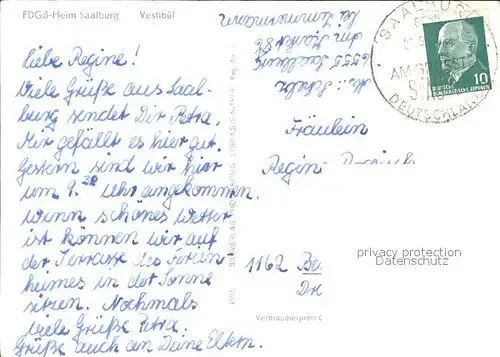 FDGB-Heim Saalburg Vestibül
Liebe Regine!
Viele Grüße aus Saal-
burg sendet Dir Petra.
Mir gefällt es hier gut.
Gestern sind wir hier
um 9.30 Uhr angekommen.
Wenn schönes Wetter
ist können wir auf
der Terrasse des Ferien
heimes in der Sonne
sitzen. Nochmals
viele Grüße Petra.
Grüße auch an Deine Eltern.
6555 Saalburg
Am Markt 86
bei Zimmermann
SAALBURG
DEUTSCHLAND
DEUTSCHE
DEMOKRATISCHE REPUBLIK
10
Fräulein
Regine
1162
privacy protection
Datenschutz
Verbraucherpreis